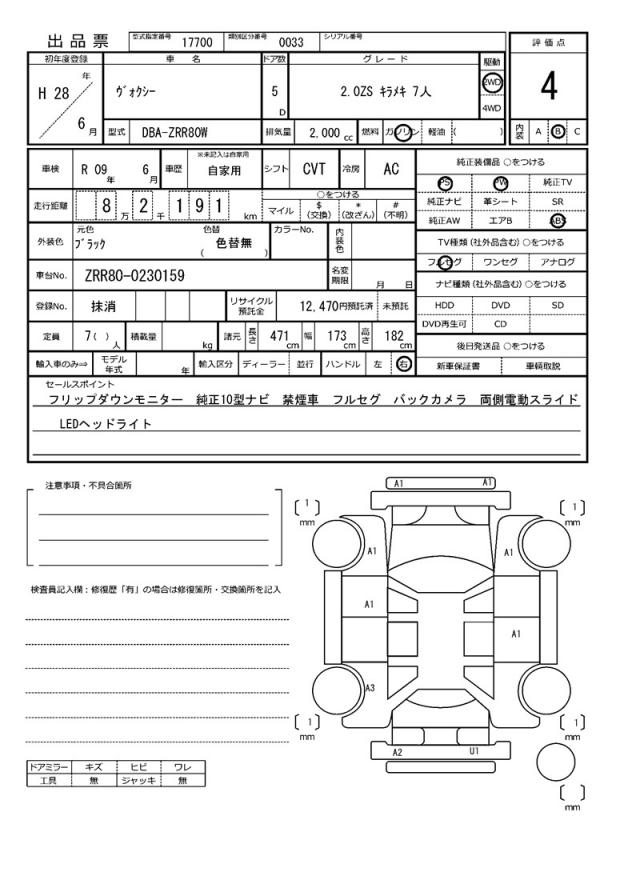 出品票 型式指定番号 17700 類別区分番号 0033 シリアル番号
評価点
4
内装 A B C
初年度登録 車名 ドア数 グレード 駆動
H 28 年 6 月 ヴォクシー 5 D 2.0ZS キラメキ 7人 2WD 4WD
型式 DBA-ZRR80W 排気量 2,000 cc 燃料 ガソリン 軽油 ( )
車検 R 09 年 6 月 車歴 ※未記入は自家用 自家用 シフト CVT 冷房 AC
走行距離 8 万 2 千 1 9 1 km ○をつける
マイル $(交換) *(改ざん) #(不明)
外装色 元色 ブラック 色替 色替無 ( ) カラーNo. 内装色
車台No. ZRR80-0230159 名変期限 月 日
登録No. 抹消 リサイクル預託金 12,470円預託済 未預託
定員 7( ) 人 積載量 kg 諸元 長さ 471 cm 幅 173 cm 高さ 182 cm
輸入車のみ⇒ モデル年式 年 輸入区分 ディーラー 並行 ハンドル 左 右
純正装備品 ○をつける
PS PW 純正TV
純正ナビ 革シート SR
純正AW エアB ABS
TV種類 (社外品含む) ○をつける
フルセグ ワンセグ アナログ
ナビ種類 (社外品含む) ○をつける
HDD DVD SD
DVD再生可 CD
後日発送品 ○をつける
新車保証書 車輌取説
セールスポイント
フリップダウンモニター 純正10型ナビ 禁煙車 フルセグ バックカメラ 両側電動スライド
LEDヘッドライト
注意事項・不具合箇所
検査員記入欄：修復歴「有」の場合は修復箇所・交換箇所を記入
ドアミラー キズ ヒビ ワレ
工具 無 ジャッキ 無
A1 A1
1 mm 1 mm
A1 A1
A1
A1
A3
1 mm 1 mm
A2 U1
mm